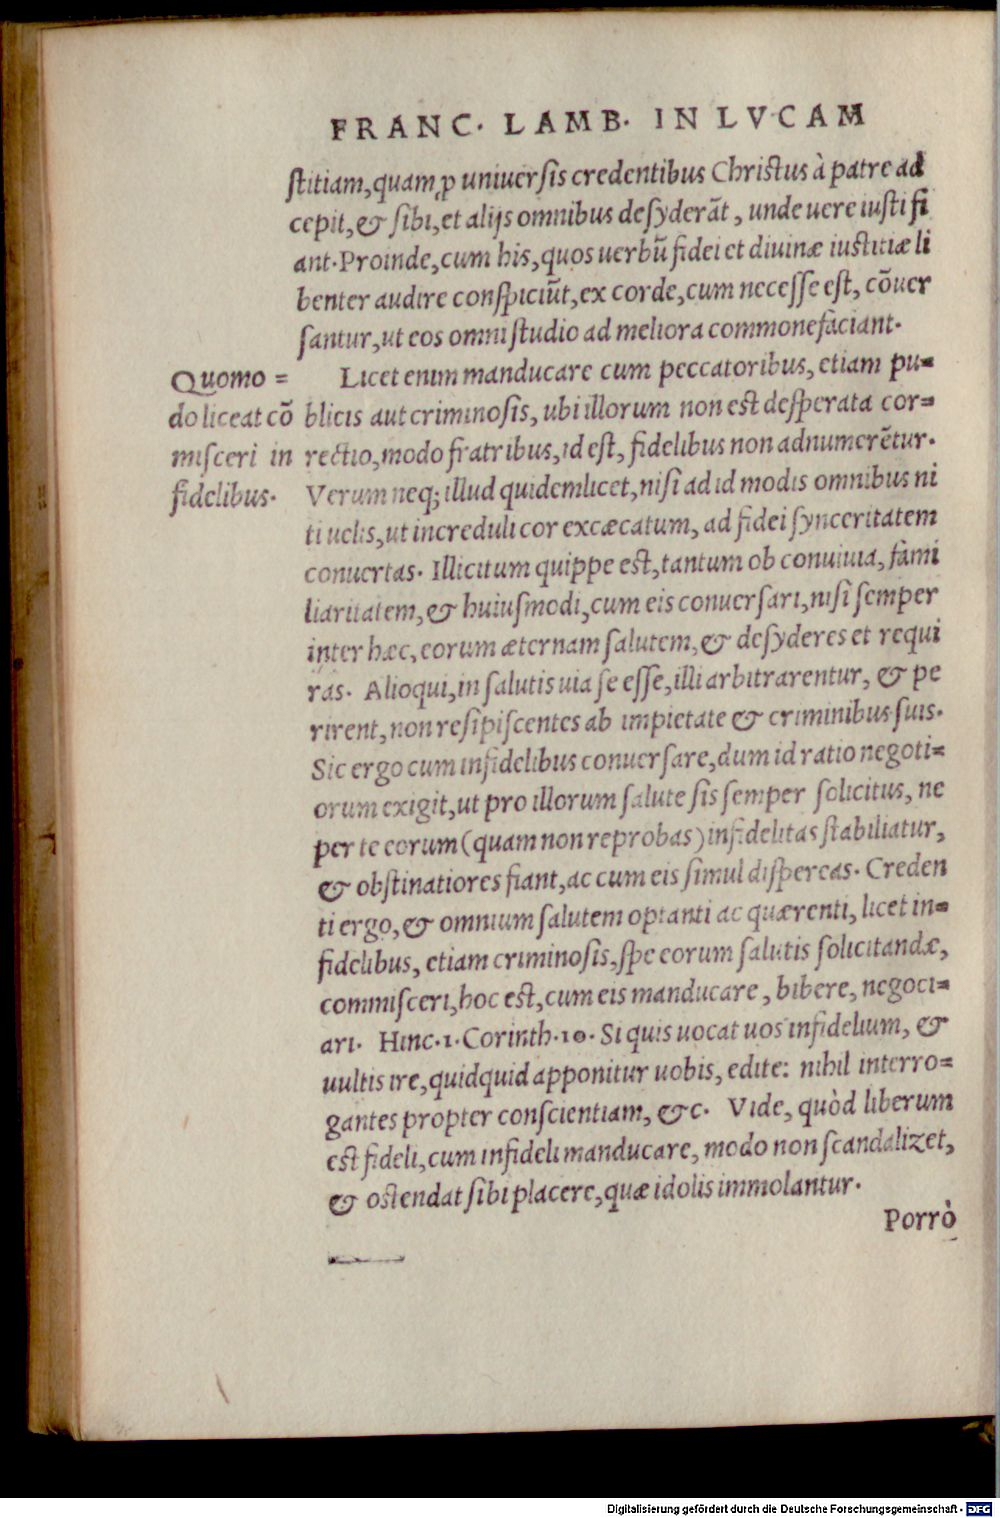 FRANC. LAMB. IN LVCAM
stitiam, quam ꝓ uniuersis credentibus Christus à patre ad
cepit, & sibi, et alijs omnibus desyderāt, unde uere iusti fi
ant. Proinde, cum his, quos uerbū fidei et diuinæ iustitiæ li
benter audire conspiciūt, ex corde, cum necesse est, cōuer
santur, ut eos omni studio ad meliora commonefaciant.
Quomo=
do liceat cō
misceri in
fidelibus.
Licet enim manducare cum peccatoribus, etiam pu=
blicis aut criminosis, ubi illorum non est desperata cor=
rectio, modo fratribus, id est, fidelibus non adnumerētur.
Verum neq; illud quidem licet, nisi ad id modis omnibus ni
ti uelis, ut increduli cor excæcatum, ad fidei synceritatem
conuertas. Illicitum quippe est, tantum ob conuiuia, fami
liaritatem, & huiusmodi, cum eis conuersari, nisi semper
inter hæc, eorum æternam salutem, & desyderes et requi
ras. Alioqui, in salutis uia se esse, illi arbitrarentur, & pe
rirent, non resipiscentes ab impietate & criminibus suis.
Sic ergo cum infidelibus conuersare, dum id ratio negoti=
orum exigit, ut pro illorum salute sis semper solicitus, ne
per te eorum (quam non reprobas) infidelitas stabiliatur,
& obstinatiores fiant, ac cum eis simul dispereas. Creden
ti ergo, & omnium salutem optanti ac quærenti, licet in=
fidelibus, etiam criminosis, spe eorum salutis solicitandæ,
commisceri, hoc est, cum eis manducare, bibere, negoci=
ari. Hinc. 1. Corinth. 10. Si quis uocat uos infidelium, &
uultis ire, quidquid apponitur uobis, edite: nihil interro=
gantes propter conscientiam, &c. Vide, quòd liberum
est fideli, cum infideli manducare, modo non scandalizet,
& ostendat sibi placere, quæ idolis immolantur.
Porrò
Digitalisierung gefördert durch die Deutsche Forschungsgemeinschaft - DFG